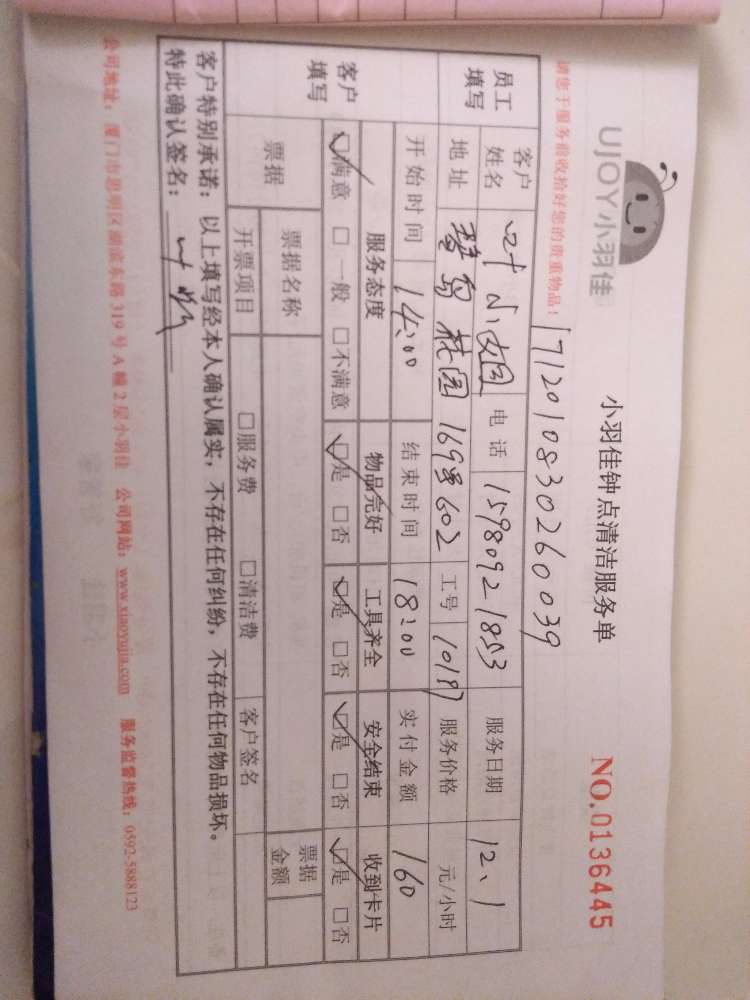 UJOY小羽佳
小羽佳钟点清洁服务单
NO.0136445
请您于服务前收拾好您的贵重物品!
171201083026 0039
员工填写 客户姓名 叶小姐 电话 15980921853 服务日期 12、1
地址 花园169号602 工号 10187 服务价格 元/小时
开始时间 14:00 结束时间 18:00 实付金额 160
客户填写 服务态度 物品完好 工具齐全 安全结束 收到卡片
☑满意 □一般 □不满意 ☑是 □否 ☑是 □否 ☑是 □否 ☑是 □否
票据 票据名称 票据金额
开票项目 □服务费 □清洁费 客户签名
客户特别承诺：以上填写经本人确认属实，不存在任何纠纷，不存在任何物品损坏。
特此确认签名：叶
公司地址：厦门市思明区湖滨东路319号A幢2层小羽佳 公司网站：www.xiaoyujia.com 服务监督热线：0592-5888123